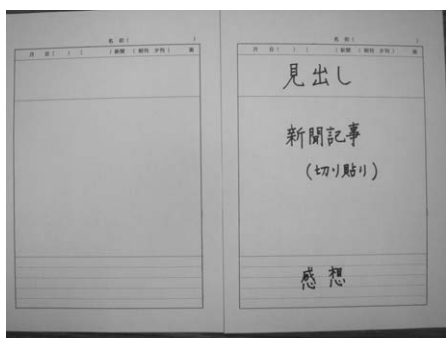 名前(　　　　)
月　日(　)(　　　)新聞　(朝刊　夕刊)　面
名前(　　　　)
月　日(　)(　　　)新聞　(朝刊　夕刊)　面
見出し
新聞記事
(切り貼り)
感想